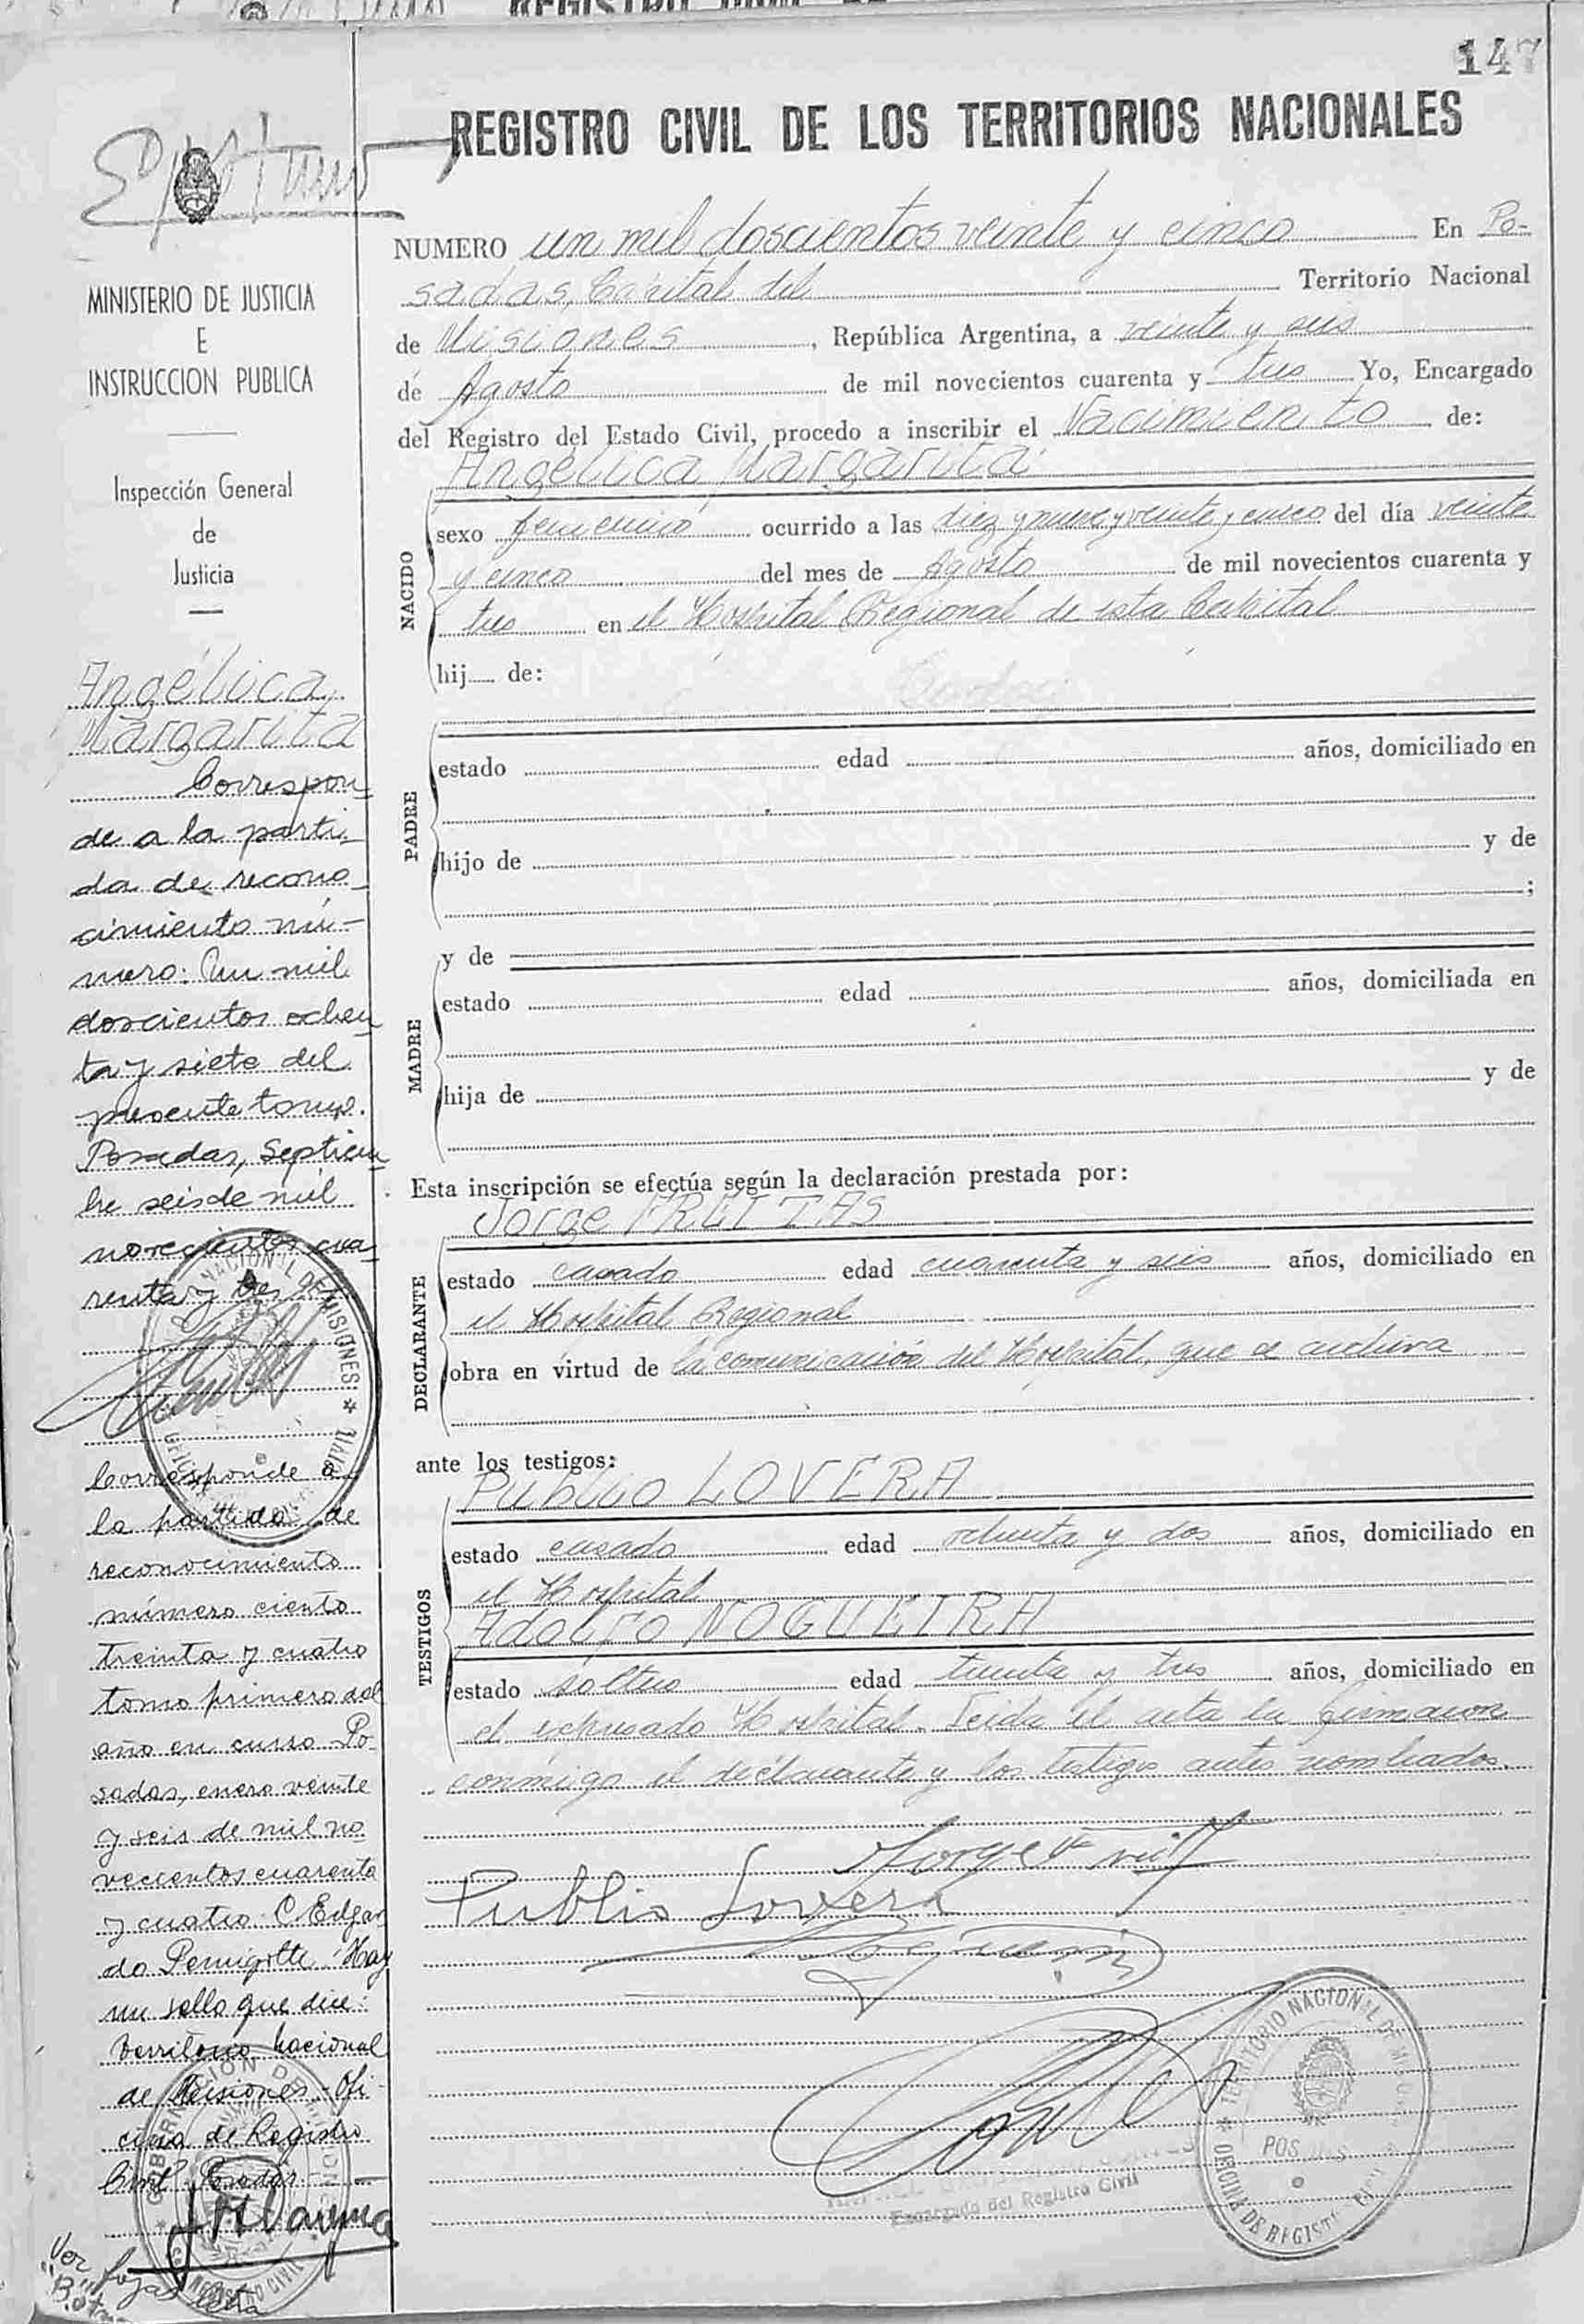 147
REGISTRO CIVIL DE LOS TERRITORIOS NACIONALES
NUMERO un mil doscientos veinte y cinco En Po-
sadas, Capital del Territorio Nacional
de Misiones, República Argentina, a veinte y seis
de Agosto de mil novecientos cuarenta y tres Yo, Encargado
del Registro del Estado Civil, procedo a inscribir el Nacimiento de:
Angélica Margarita
NACIDO
sexo femenino ocurrido a las diez y nueve y veinte y cinco del día veinte
y cinco del mes de Agosto de mil novecientos cuarenta y
tres en el Hospital Regional de esta Capital
hij de:
PADRE
estado edad años, domiciliado en
hijo de y de
;
y de
MADRE
estado edad años, domiciliada en
hija de y de
Esta inscripción se efectúa según la declaración prestada por:
Jorge FREITAS
DECLARANTE
estado casado edad cuarenta y seis años, domiciliado en
el Hospital Regional
obra en virtud de la comunicación del Hospital, que se archiva
ante los testigos:
Publio LOVERA
TESTIGOS
estado casado edad ochenta y dos años, domiciliado en
el Hospital
Adolfo NOGUEIRA
estado soltero edad treinta y tres años, domiciliado en
el expresado Hospital. Leida el acta la firmaron
conmigo el declarante y los testigos antes nombrados.
Jorge
Publio Lovera
TERRITORIO NACIONAL DE MISIONES
OFICINA DE REGISTRO CIVIL
POSADAS
Encargado del Registro Civil
MINISTERIO DE JUSTICIA
E
INSTRUCCION PUBLICA
Inspección General
de
Justicia
Angélica
Margarita
Correspon
de a la parti-
da de recono-
cimiento nú-
mero: Un mil
doscientos ochen
ta y siete del
presente tomo.
Posadas, Septiem
bre seis de mil
novecientos cua
renta y tres
Corresponde a
la partida de
reconocimiento
número ciento
treinta y cuatro
tomo primero del
año en curso Po
sadas, enero veinte
y seis de mil no
vecientos cuarenta
y cuatro C. Edgar
do Hay
un sello que dice:
Territorio Nacional
de Misiones - Ofi
cina de Registro
Civil Posadas
GOBERNACION DE MISIONES
REGISTRO CIVIL
Ver fojas letra
"B"